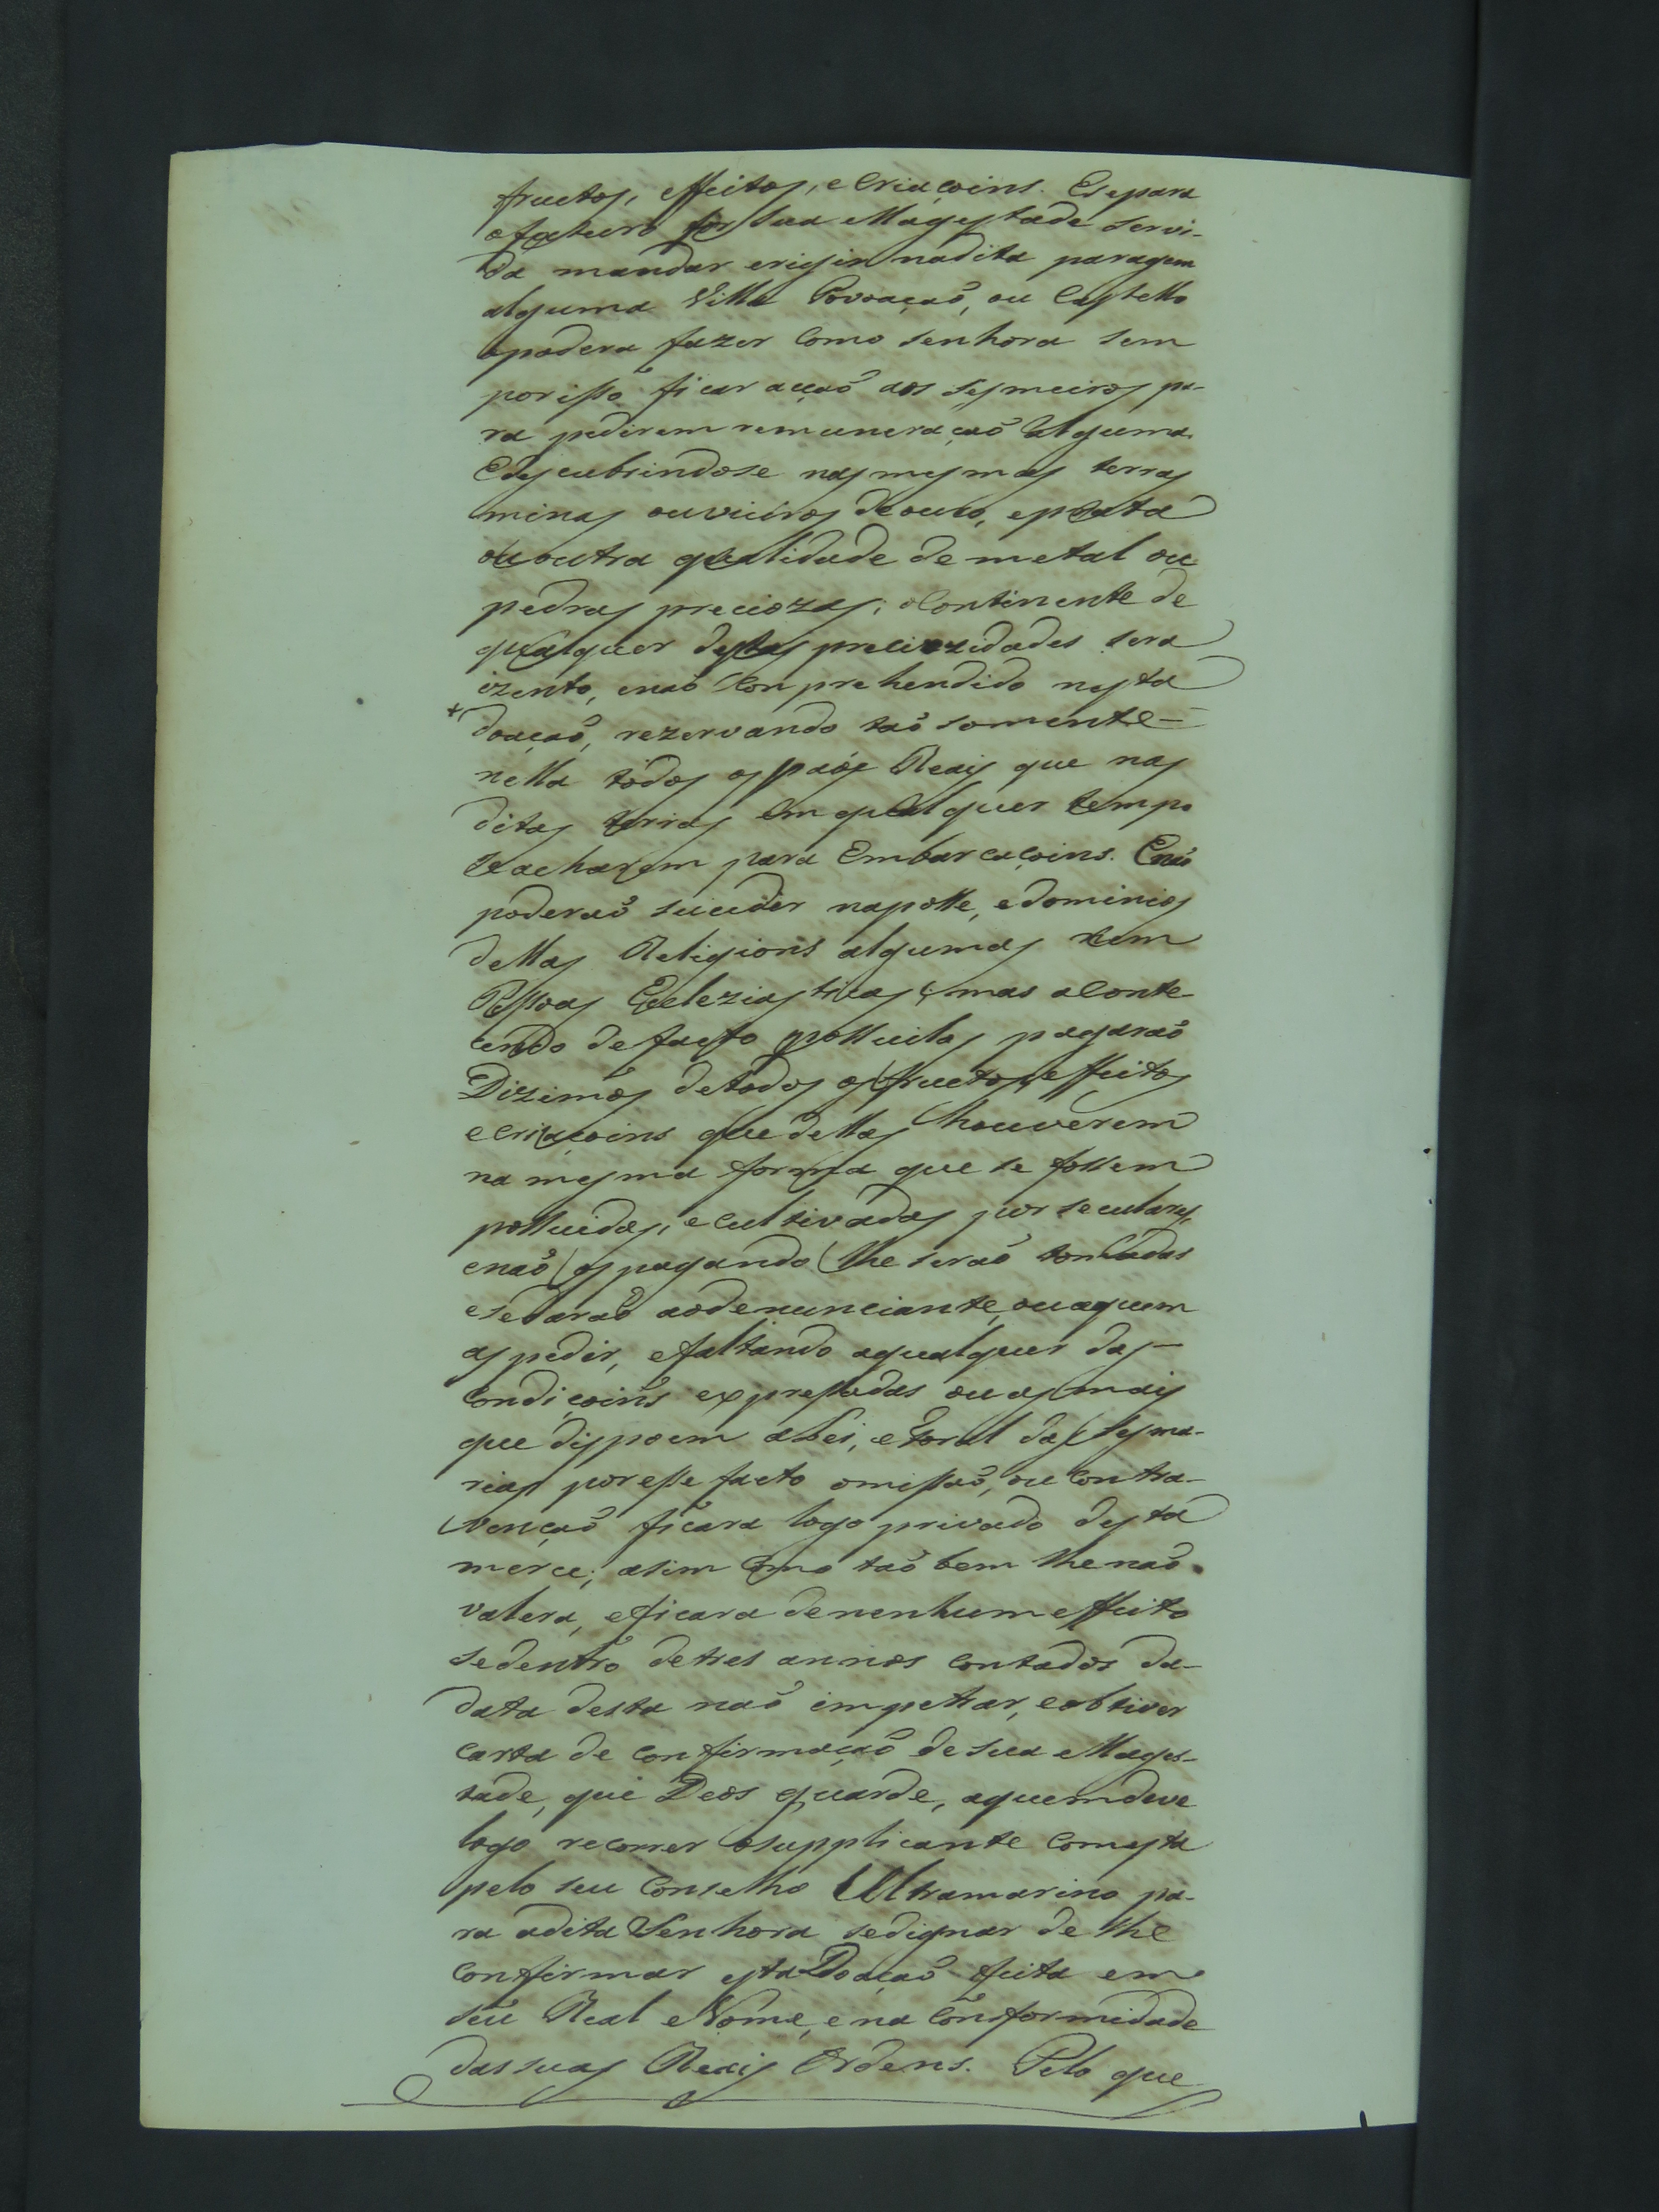 fructos, effeitos, e Criaçoins. Esepara
ofucturo for Sua Magestade servi-
da mandar erigir nadita paragem
alguma Villa Povoaçaõ, ou Castello
opodera fazer Como senhora sem
porisso ficar acçaõ aos sesmeiros pa-
ra pedirem remuneraçaõ alguma.
Edescubrindose nas mesmas terras
minas ouvieiros de ouro, eprata
ou outra qualidade de metal ou
pedras preciozas; oContinente de
qualquer destas preciozidades sera
izento, enaõ Comprehendido nesta
doaçaõ, rezervando taõ somente=
nella todos os páos Reais que nas
ditas terras em qualquer tempo
se acharem para Embarcaçoins. Enaõ
poderaõ suceder naposse, edominios
dellas Religions algumas nem
Pessoas Ecleziasticas; mas aConte-
cendo defacto possuilas pagaraõ
Dizimos detodos os fructos, effeitos
eCriaçoins que dellas houverem
na mesma forma que se fossem
possuidas, eCultivadas por seculares,
enaõ os pagando lhe seraõ tomadas
esedaraõ aodenunciante, ouaquem
as pedir, efaltando aqualquer das-
Condiçoins expressadas ou as mais
que dispoem aLei, eForal das sesma-
rias poresse facto omissaõ, ou Contra-
vençaõ ficara logo privado desta
merce; asim Como taõ bem lhe naõ
valera, eficara de nenhum effeito
sedentro detres annos Contados da-
data desta naõ impetrar, eobtiver
carta de Confirmaçaõ desua Mages-
tade, que Deos guarde, aquemdeve
logo recorrer osupplicante Comesta
pelo seu Conselho Ultramarino pa-
ra adita Senhora sedignar de lhe
Confirmar esta Doaçaõ feita em
seu Real Nome, ena Conformidade
dassuas Reais Ordens. Pelo que